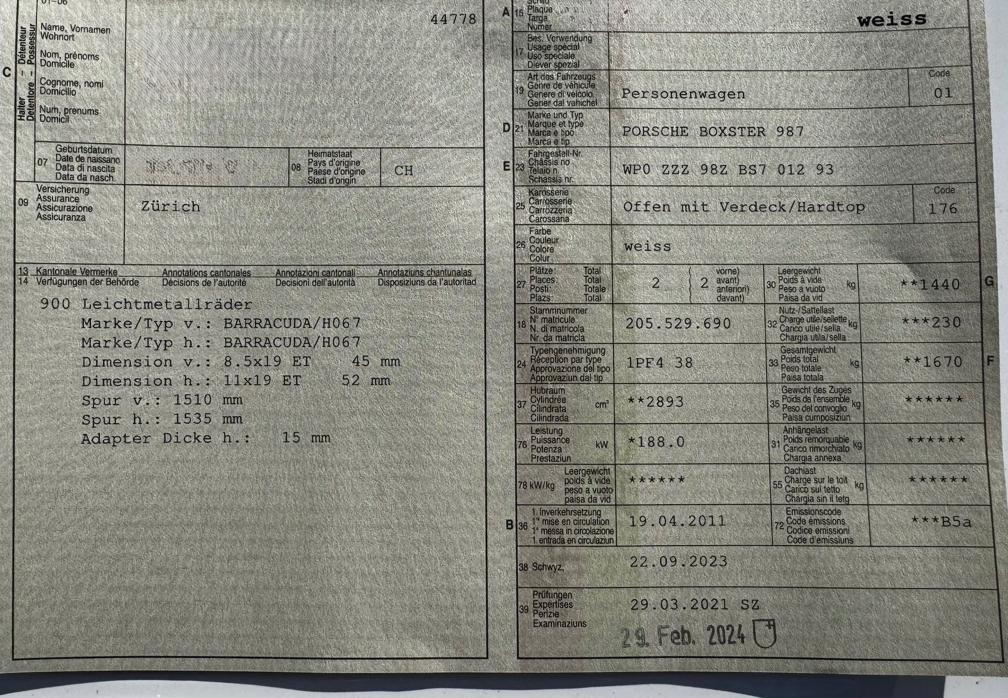 44778
C
Halter - Détenteur
Detentore - Possessur
Name, Vornamen
Wohnort
Nom, prénoms
Domicile
Cognome, nomi
Domicilio
Num, prenums
Domicil
07
Geburtsdatum
Date de naissance
Data di nascita
Data da nasch.
08
Heimatstaat
Pays d'origine
Paese d'origine
Stadi d'origin
CH
09
Versicherung
Assurance
Assicurazione
Assicuranza
Zürich
13 Kantonale Vermerke Annotations cantonales Annotazioni cantonali Annotaziuns chantunalas
14 Verfügungen der Behörde Décisions de l'autorité Decisioni dell'autorità Disposiziuns da l'autoritad
900 Leichtmetallräder
Marke/Typ v.: BARRACUDA/H067
Marke/Typ h.: BARRACUDA/H067
Dimension v.: 8.5x19 ET 45 mm
Dimension h.: 11x19 ET 52 mm
Spur v.: 1510 mm
Spur h.: 1535 mm
Adapter Dicke h.: 15 mm
A 15
Plaque
Targa
Numer
weiss
17
Bes. Verwendung
Usage spécial
Uso speciale
Diever spezial
19
Art des Fahrzeugs
Genre de véhicule
Genere di veicolo
Gener dal vahichel
Personenwagen
Code
01
D 21
Marke und Typ
Marque et type
Marca e tipo
Marca e tip
PORSCHE BOXSTER 987
E 23
Fahrgestell-Nr.
Châssis no
Telaio n.
Schassis nr.
WP0 ZZZ 98Z BS7 012 93
25
Karosserie
Carrosserie
Carrozzeria
Carossaria
Offen mit Verdeck/Hardtop
Code
176
26
Farbe
Couleur
Colore
Colur
weiss
27
Plätze: Total
Places: Total
Posti: Totale
Plazs: Total
2
2
vorne)
avant)
anteriori)
davant)
30
Leergewicht
Poids à vide
Peso a vuoto
Paisa da vid
kg
**1440
G
18
Stammnummer
N° matricule
N. di matricola
Nr. da matricla
205.529.690
32
Nutz-/Sattellast
Charge utile/sellette
Carico utile/sella
Chargia utila/sella
kg
***230
24
Typengenehmigung
Réception par type
Approvazione del tipo
Approvaziun dal tip
1PF4 38
33
Gesamtgewicht
Poids total
Peso totale
Paisa totala
kg
**1670
F
37
Hubraum
Cylindrée
Cilindrata
Cilindrada
cm³
**2893
35
Gewicht des Zuges
Poids de l'ensemble
Peso del convoglio
Paisa cumposiziun
kg
******
76
Leistung
Puissance
Potenza
Prestaziun
kW
*188.0
31
Anhängelast
Poids remorquable
Carico rimorchiato
Chargia annexa
kg
******
78 kW/kg
Leergewicht
poids à vide
peso a vuoto
paisa da vid
******
55
Dachlast
Charge sur le toit
Carico sul tetto
Chargia sin il tetg
kg
******
B 36
1. Inverkehrsetzung
1re mise en circulation
1a messa in circolazione
1. entrada en circulaziun
19.04.2011
72
Emissionscode
Code émissions
Codice emissioni
Code d'emissiuns
***B5a
38 Schwyz,
22.09.2023
39
Prüfungen
Expertises
Perizie
Examinaziuns
29.03.2021 SZ
29. Feb. 2024